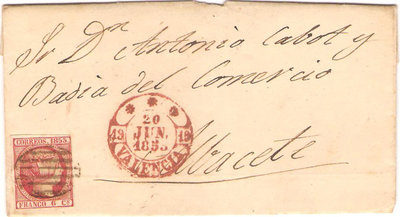 Sr Dn Antonio Cabot y
Badia del Comercio
20
JUN.
1853
19 19
VALENCIA
Albacete
CORREOS. 1853.
FRANCO. 6 Cs